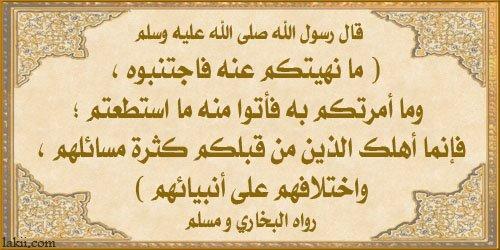 قال رسول الله صلى الله عليه وسلم
( ما نهيتكم عنه فاجتنبوه ،
وما أمرتكم به فأتوا منه ما استطعتم ؛
فإنما أهلك الذين من قبلكم كثرة مسائلهم ،
واختلافهم على أنبيائهم )
رواه البخاري و مسلم
lakii.com